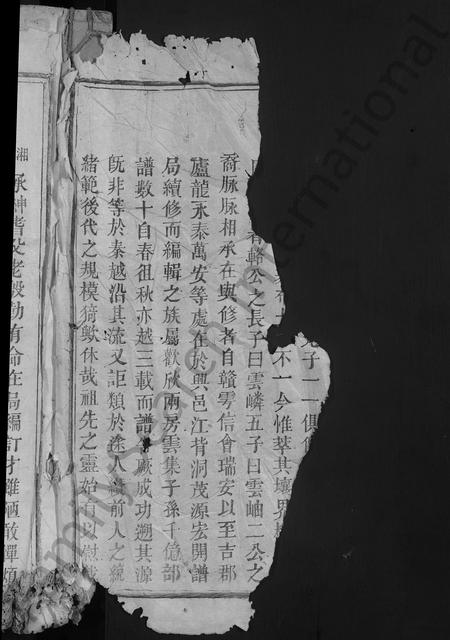 子一一俱
不一今惟萃其壤界
公之長子曰雲嶙五子曰雲岫二公之
裔脉脉相承在與修者自贛雩信會瑞安以至吉郡
廬龍永泰萬安等處在於興邑江背洞茂源宏開譜
局續修而編輯之族屬歡欣兩房雲集子孫千億部
譜數十自春徂秋亦越三載而譜厥成功遡其源
旣非等於秦越沿其流又詎類於途人綏前人之統
緒範後代之規模猗歟休哉祖先之靈始有以慰
湘
承紳耆父老毅劻有命在局編訂才雖陋敢憚煩
FamilySearch International